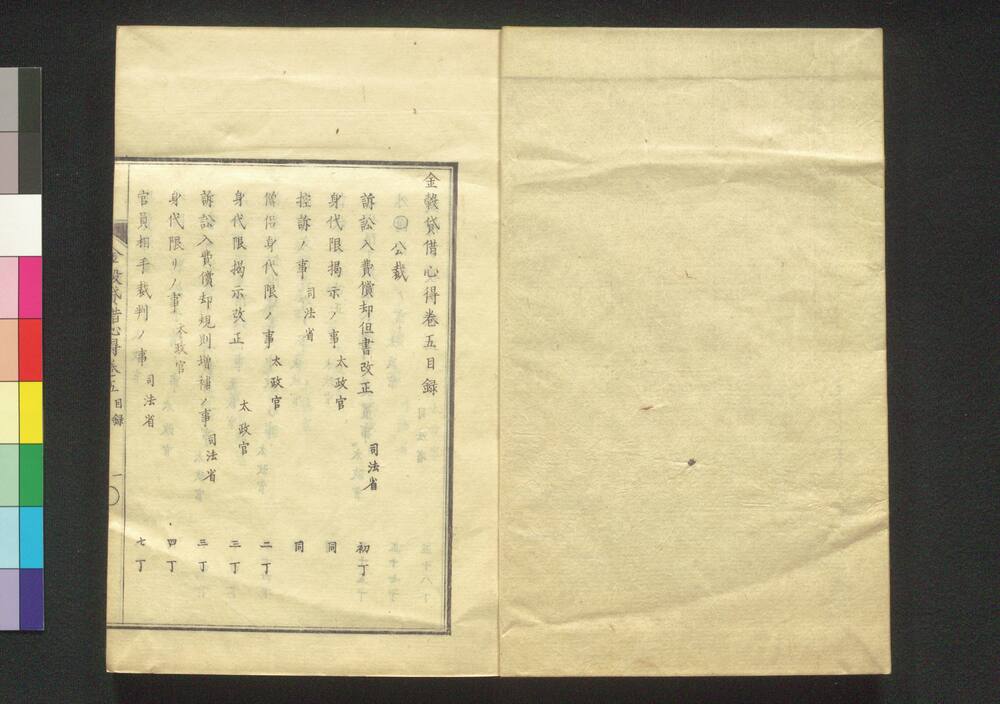 金穀貸借心得卷五目録
○公裁
訴訟入費償却但書改正 司法省 初丁
身代限揭示ノ事 太政官 同
控訴ノ事 司法省 同
僧侶身代限ノ事 太政官 二丁
身代限揭示改正 太政官 三丁
訴訟入費償却規則增補ノ事 司法省 三丁
身代限リノ事 太政官 四丁
官員相手裁判ノ事 司法省 七丁
金穀貸借心得卷五 目録 一